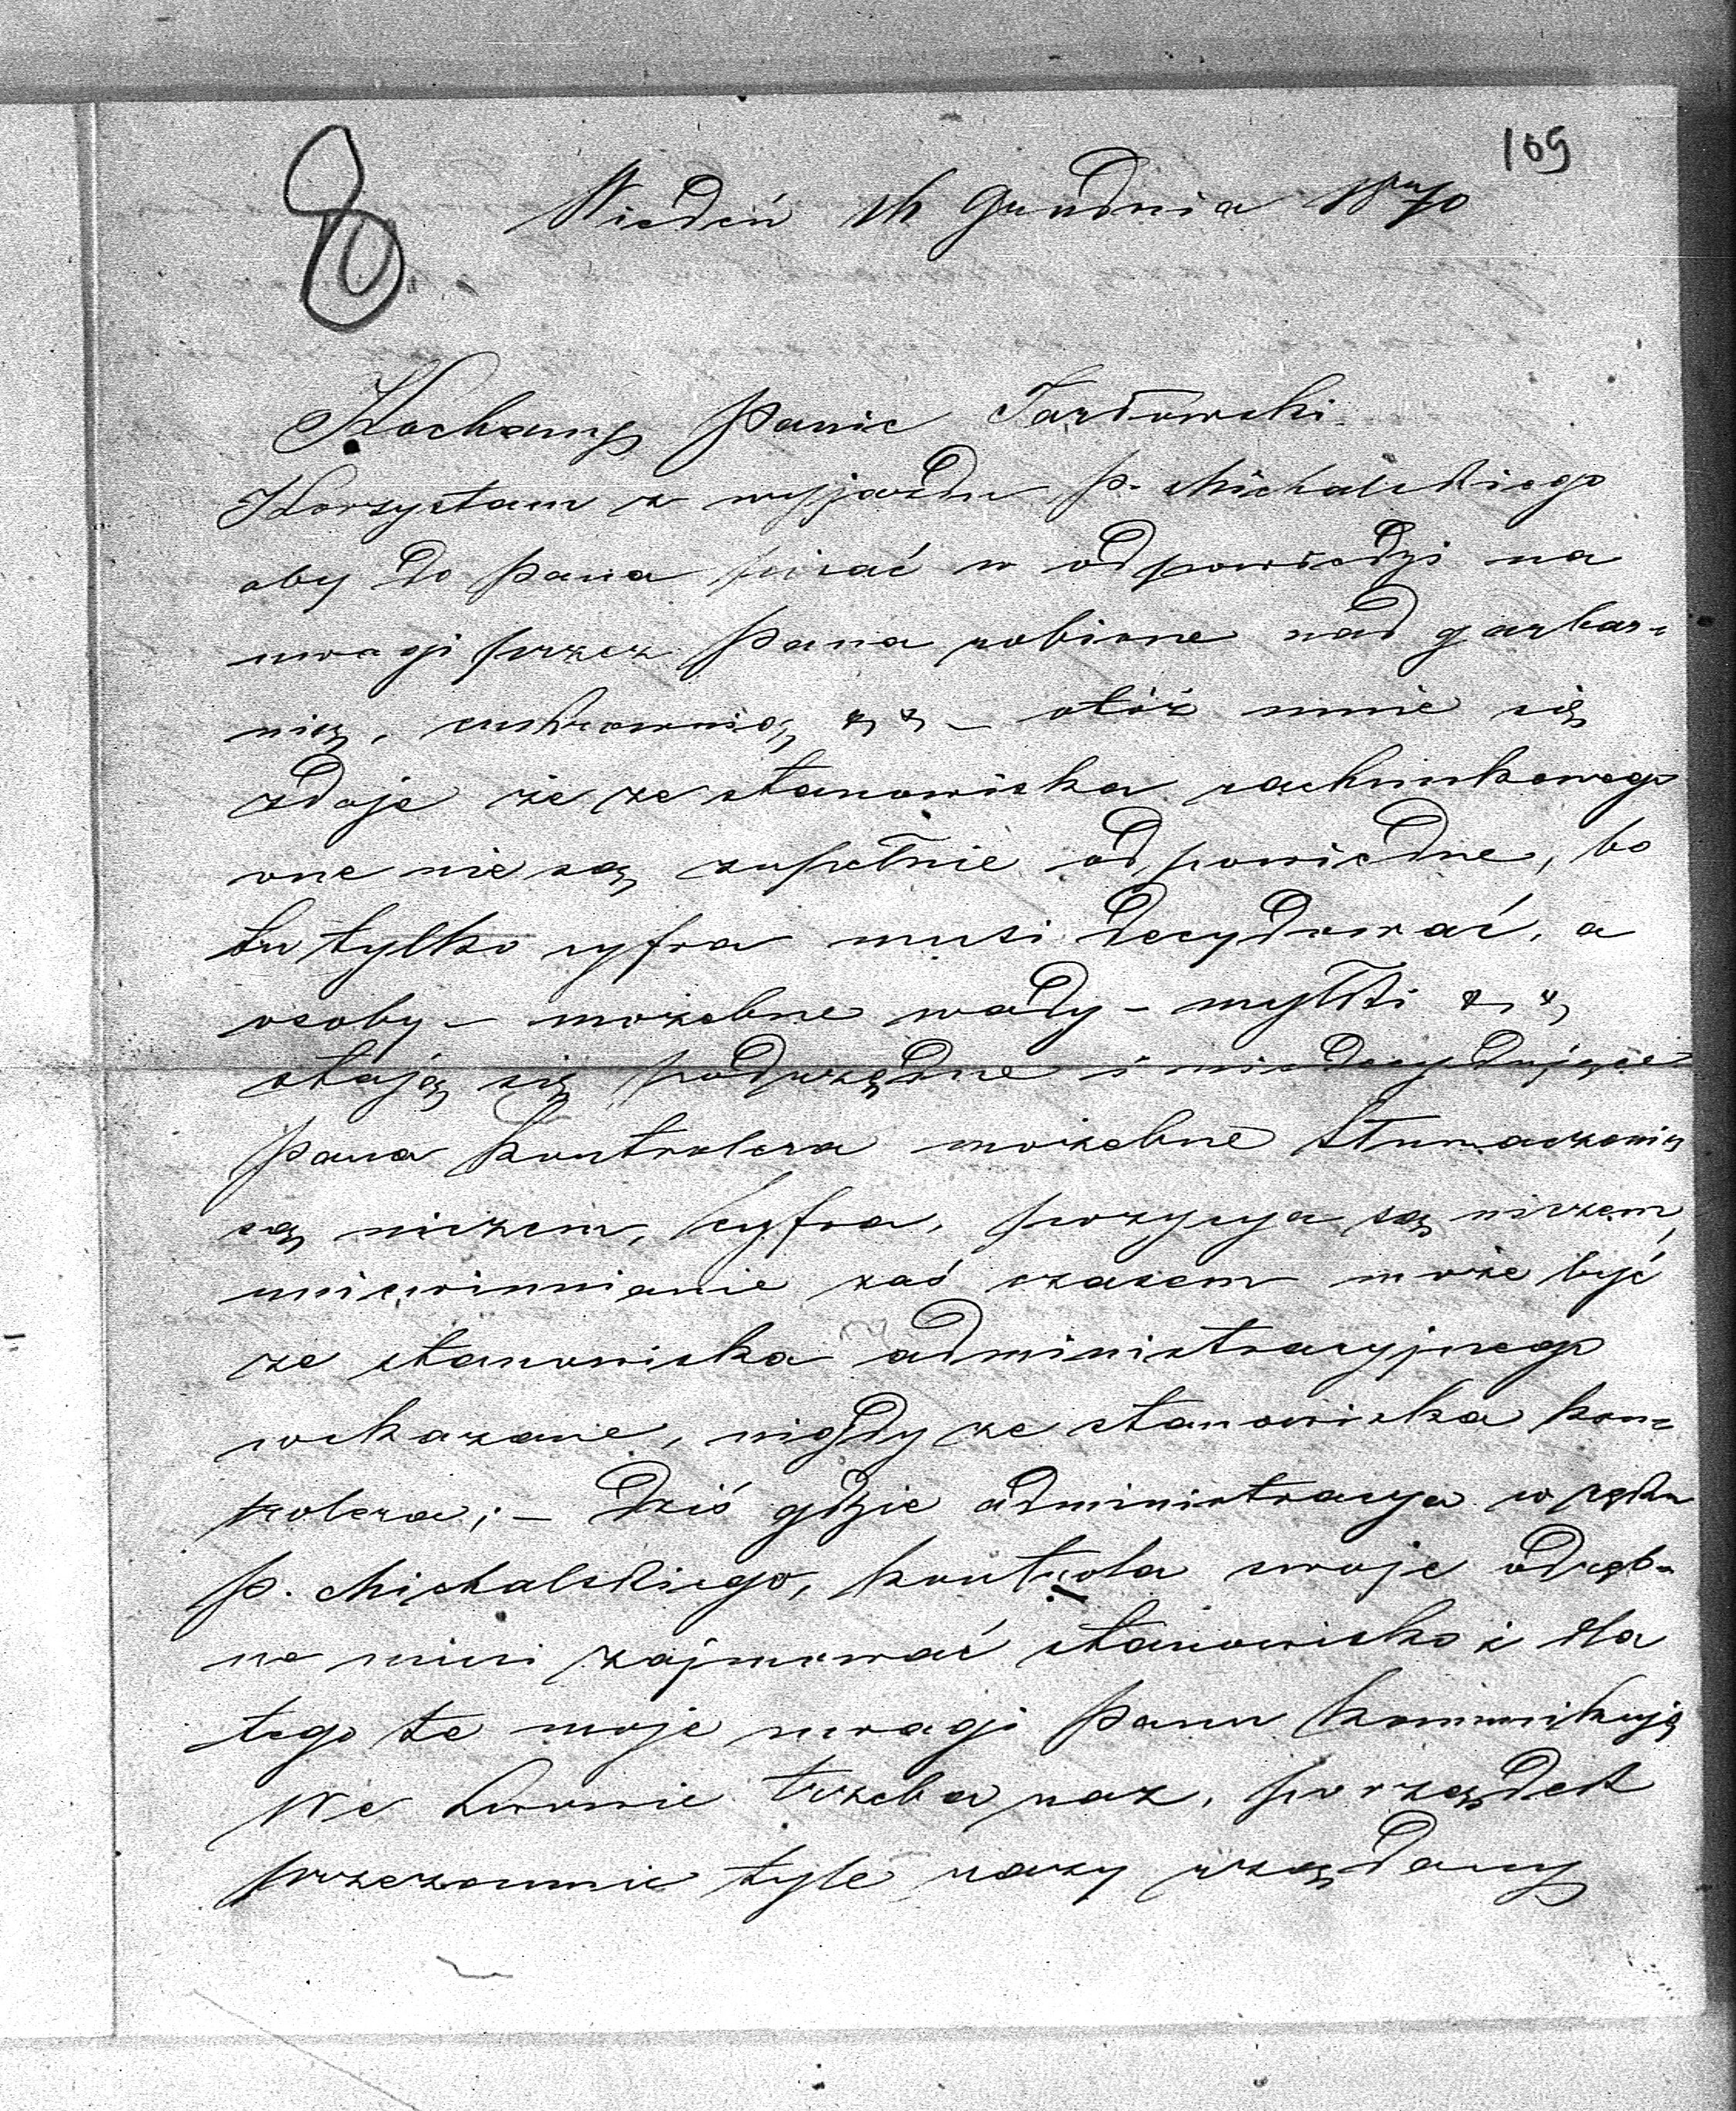 109
8
Wiedeń 16 Grudnia 1870
Kochany Panie Tarłowski
Korzystam z wyjazdu p. Michalskiego
aby do Pana pisać w odpowiedzi na
uwagi przez Pana robione nad garbar=
nią, cukrownią, &, & – otóż mnie się
zdaje że ze stanowiska rachunkowego
one nie są zupełnie odpowiedne, bo
tu tylko cyfra musi decydować, a
osoby – możebne wady – myłki &, &,
stają się podrzędne i niedecydujące
Pana kontrolera możebne tłumaczenia
są niczem, cyfra, pozycya są niczem,
uniewinnianie zaś czasem może być
ze stanowiska administracyjnego
wskazane, nigdy ze stanowiska kon=
trolera; – Dziś gdzie administracya w ręku
p. Michalskiego, kontrola swoje odręb=
ne musi zajmować stanowisko i dla
tego te moje uwagi Panu komunikuję
We Lwowie trzeba raz, porządek
przezemnie tyle razy żądany